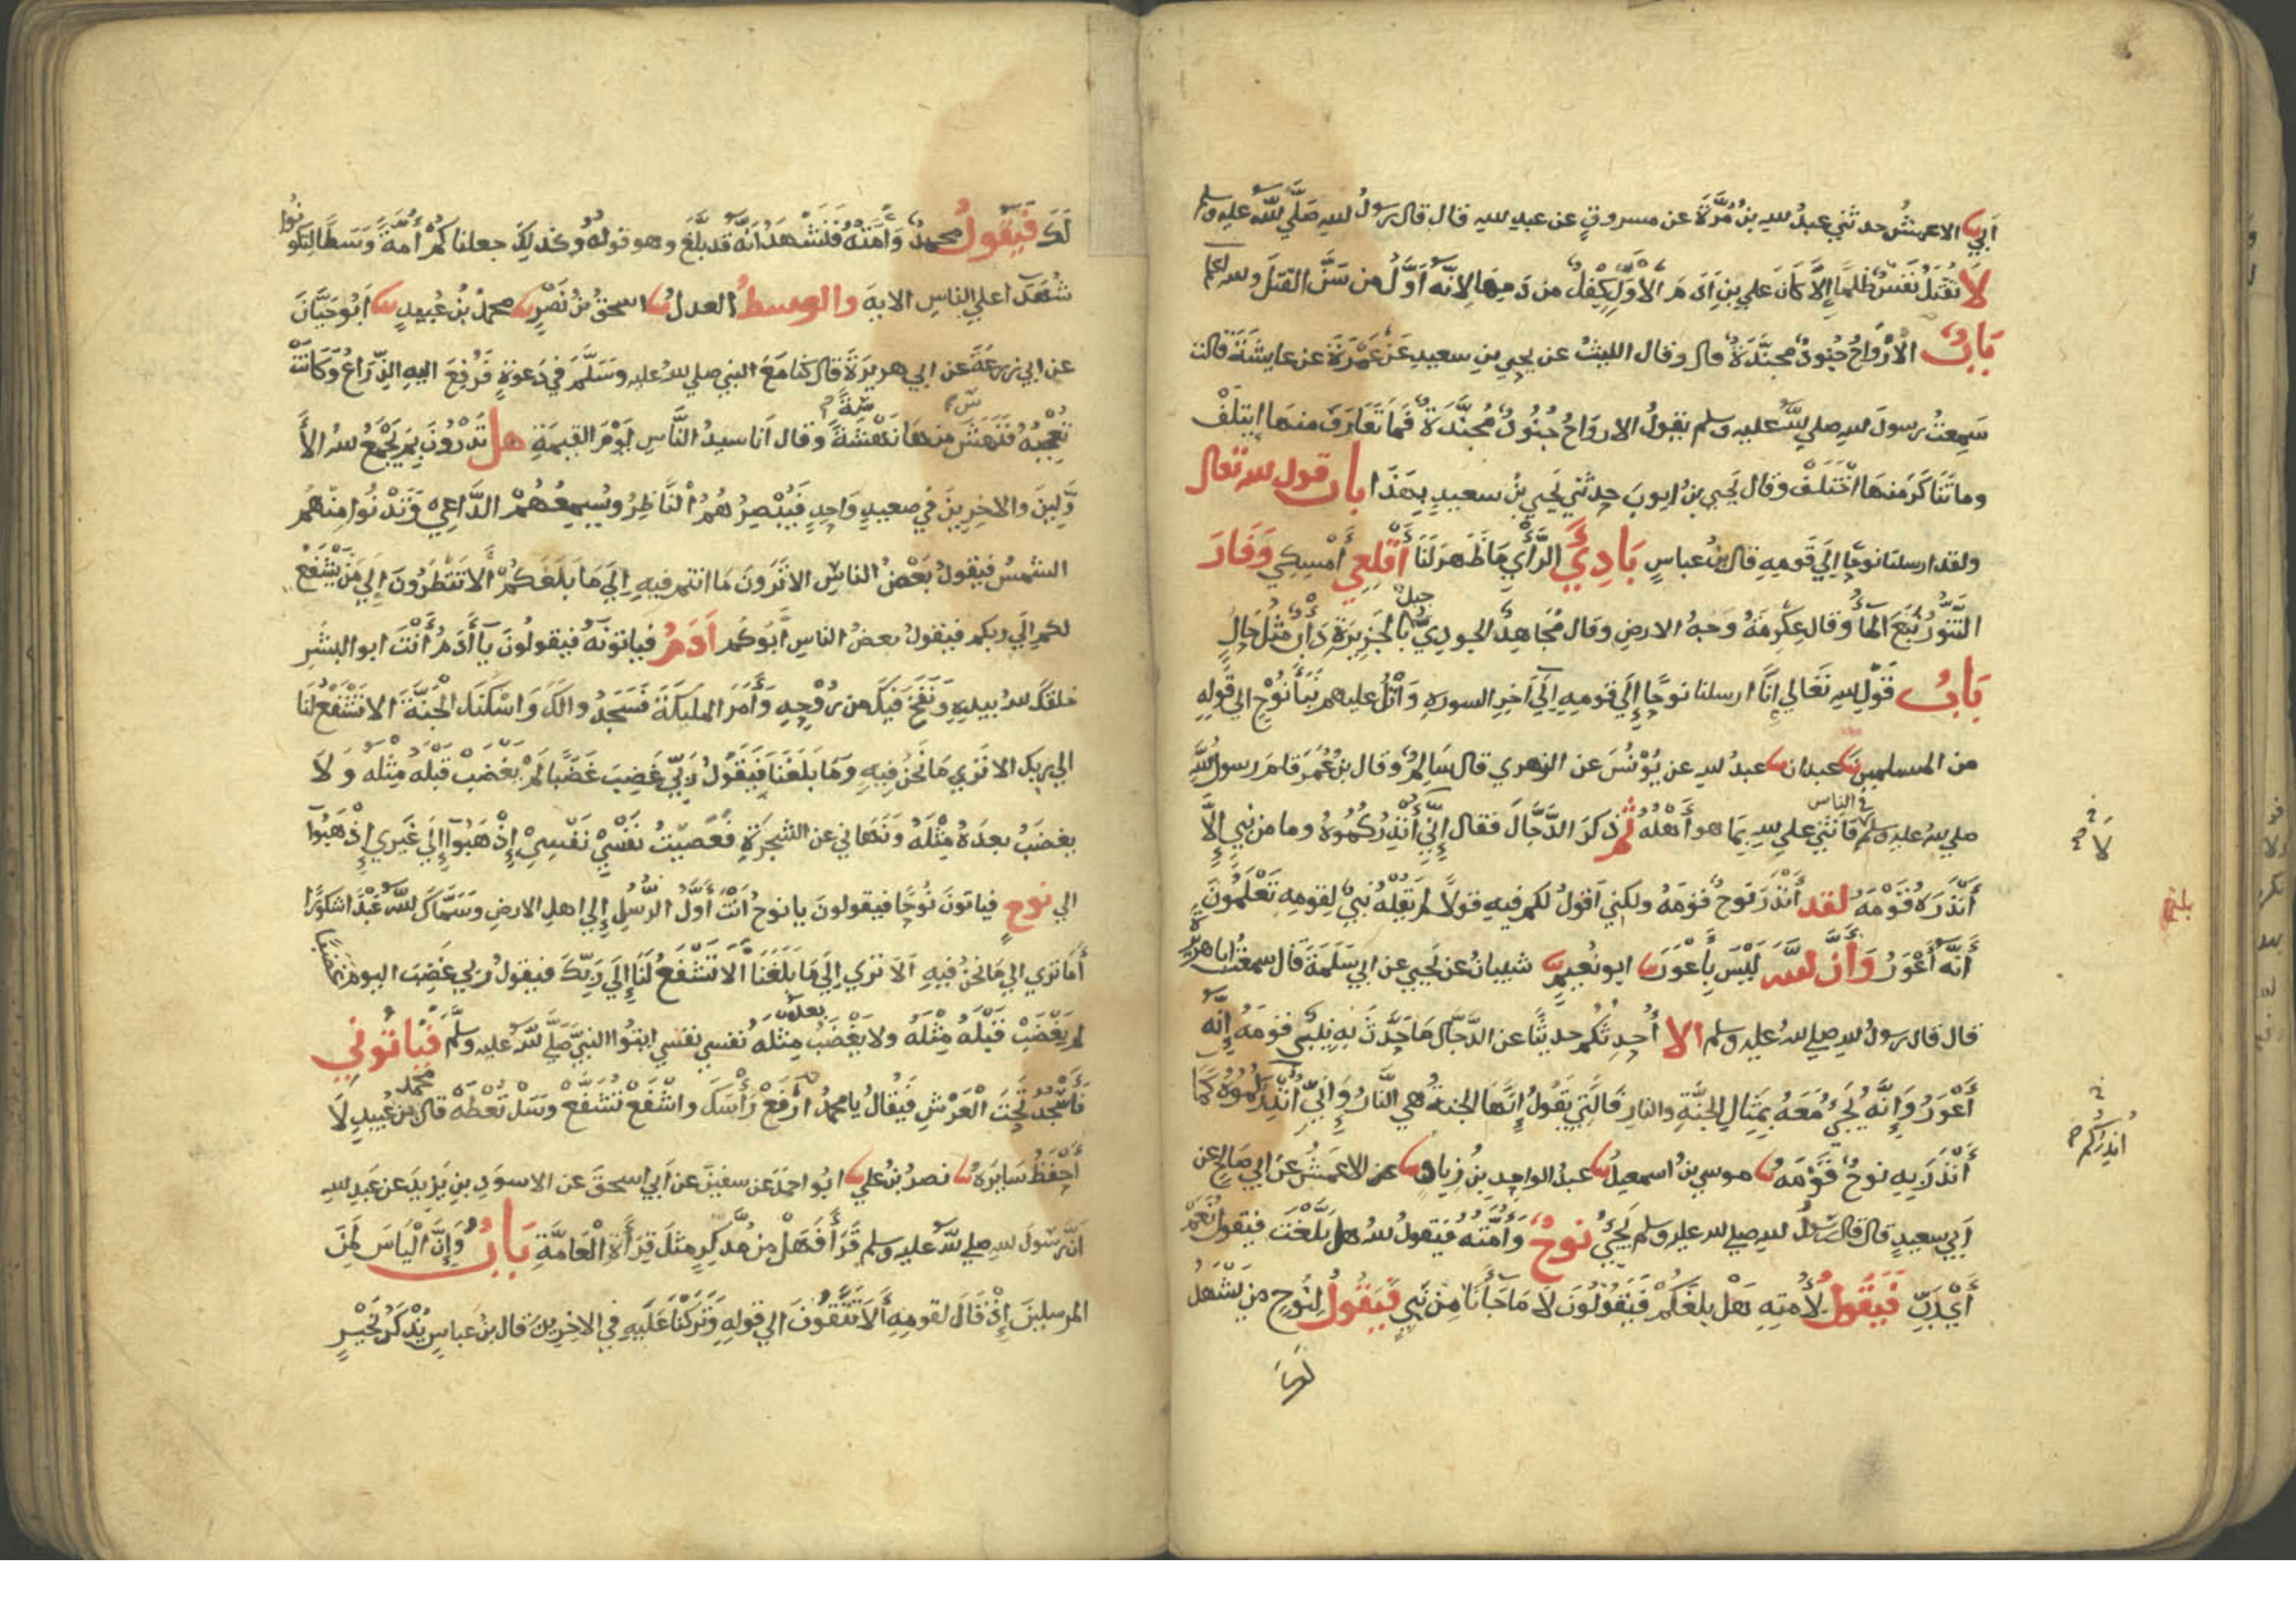 أبي الاعمش حدثني عبد الله بن مرة عن مسروق عن عبد الله قال قال رسول الله صلي الله عليه وسلم
لا تقتل نفس ظلما إلا كان علي بن آدم الأول كفل من دمها لانه أول من سن القتل
باب الأرواح جنود مجندة قال وقال الليث عن يحيي بن سعيد عن عمرة عن عايشة قالت
سمعت رسول الله صلي الله عليه وسلم يقول الارواح جنود مجندة فما تعارف منها ايتلف
وما تناكر منها اختلف وقال يحيي بن ايوب حدثني يحيي بن سعيد بهذا باب قول الله تعالي
ولقد ارسلنا نوحا إلي قومه قال بن عباس بادي الرأي ما ظهر لنا أقلعي أمسكي وفار
التنور نبع الماء وقال عكرمة وجه الارض وقال مجاهد الجودي جبل بالجزيرة دأب مثل حال
باب قول الله تعالي انا ارسلنا نوحا إلي قومه إلي آخر السورة واتل عليهم نبأ نوح الي قوله
من المسلمين عبدان عبد الله عن يونس عن الزهري قال سالم وقال بن عمر قام رسول الله
صلي الله عليه وسلم في الناس فاثني علي الله بما هو أهله ثم ذكر الدجال فقال إني أنذركموه وما من نبي إلا
لا
أنذره قومه لقد أنذر نوح قومه ولكني اقول لكم فيه قولا لم يقله نبي لقومه تعلمون
أنه أعور وأن الله ليس بأعور ابو نعيم شيبان عن يحيي عن ابي سلمة قال سمعت ابا هريرة
قال قال رسول الله صلي الله عليه وسلم الا أحدثكم حديثا عن الدجال ما حدث به نبي قومه إنه
أعور وإنه يجيء معه بمثال الجنة والنار فالتي يقول إنها الجنة هي النار وإني أنذركموه كما
انذركم
أنذر به نوح قومه موسي بن اسمعيل عبد الواحد بن زياد عن الاعمش عن ابي صالح عن
أبي سعيد قال قال رسول الله صلي الله عليه وسلم يجيء نوح وأمته فيقول الله هل بلغت فيقول نعم
أي رب فيقول لأمته هل بلغكم فيقولون لا ما جأنا من نبي فيقول لنوح من يشهد
لك فيقول محمد وأمته فنشهد أنه قد بلغ وهو قوله وكذلك جعلناكم أمة وسطا لتكونوا
شهدآ علي الناس الاية والوسط العدل اسحق بن نصر محمد بن عبيد أبو حيان
عن ابي زرعة عن ابي هريرة قال كنا مع النبي صلي الله عليه وسلم في دعوة فرفع اليه الذراع وكانت
تعجبه فنهش منها نهشة وقال أنا سيد الناس يوم القيمة هل تدرون بم يجمع الله الأ
ولين والاخرين في صعيد واحد فيبصرهم الناظر ويسمعهم الداعي وتدنوا منهم
الشمس فيقول بعض الناس الا ترون ما انتم فيه إلي ما بلغكم ألا تنظرون إلي من يشفع
لكم إلي ربكم فيقول بعض الناس أبوكم آدم فياتونه فيقولون يا آدم أنت ابو البشر
خلقك الله بيده ونفخ فيك من روحه وأمر المليكة فسجدوا لك واسكنك الجنة الا تشفع لنا
الي ربك الا تري ما نحن فيه وما بلغنا فيقول ربي غضب غضبا لم يغضب قبله مثله ولا
يغضب بعده مثله ونهاني عن الشجرة فعصيت نفسي نفسي إذهبوا إلي غيري إذهبوا
الي نوح فياتون نوحا فيقولون يا نوح أنت أول الرسل إلي اهل الارض وسماك الله عبدا شكورا
أما تري الي ما نحن فيه ألا تري إلي ما بلغنا ألا تشفع لنا إلي ربك فيقول ربي غضب اليوم غضبا
لم يغضب قبله مثله ولا يغضب بعده مثله نفسي نفسي ايتوا النبي صلي الله عليه وسلم فياتوني
فأسجد تحت العرش فيقال يا محمد ارفع رأسك واشفع تشفع وسل تعطه قال محمد بن عبيد لا
أحفظ سايره نصر بن علي ابو احمد عن سفين عن أبي اسحق عن الاسود بن يزيد عن عبد الله
أن رسول الله صلي الله عليه وسلم قرأ فهل من مدكر مثل قرأة العامة باب وإن الياس لمن
المرسلين إذ قال لقومه ألا تتقون الي قوله وتركنا عليه في الاخرين قال بن عباس يذكر بخير